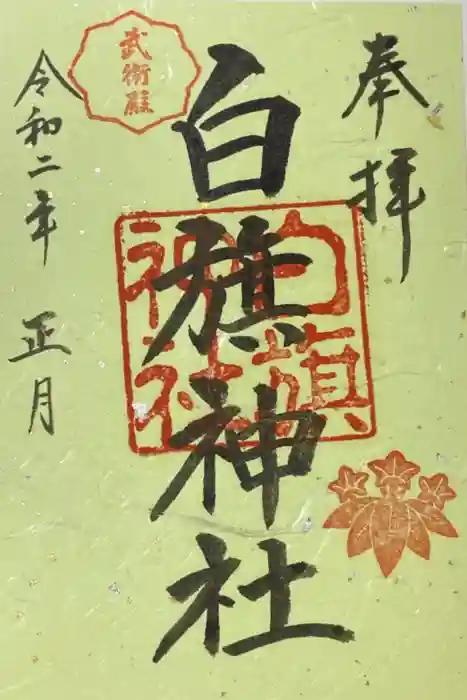 奉拝
白旗神社
白旗
神社
武術殿
令和二年 正月